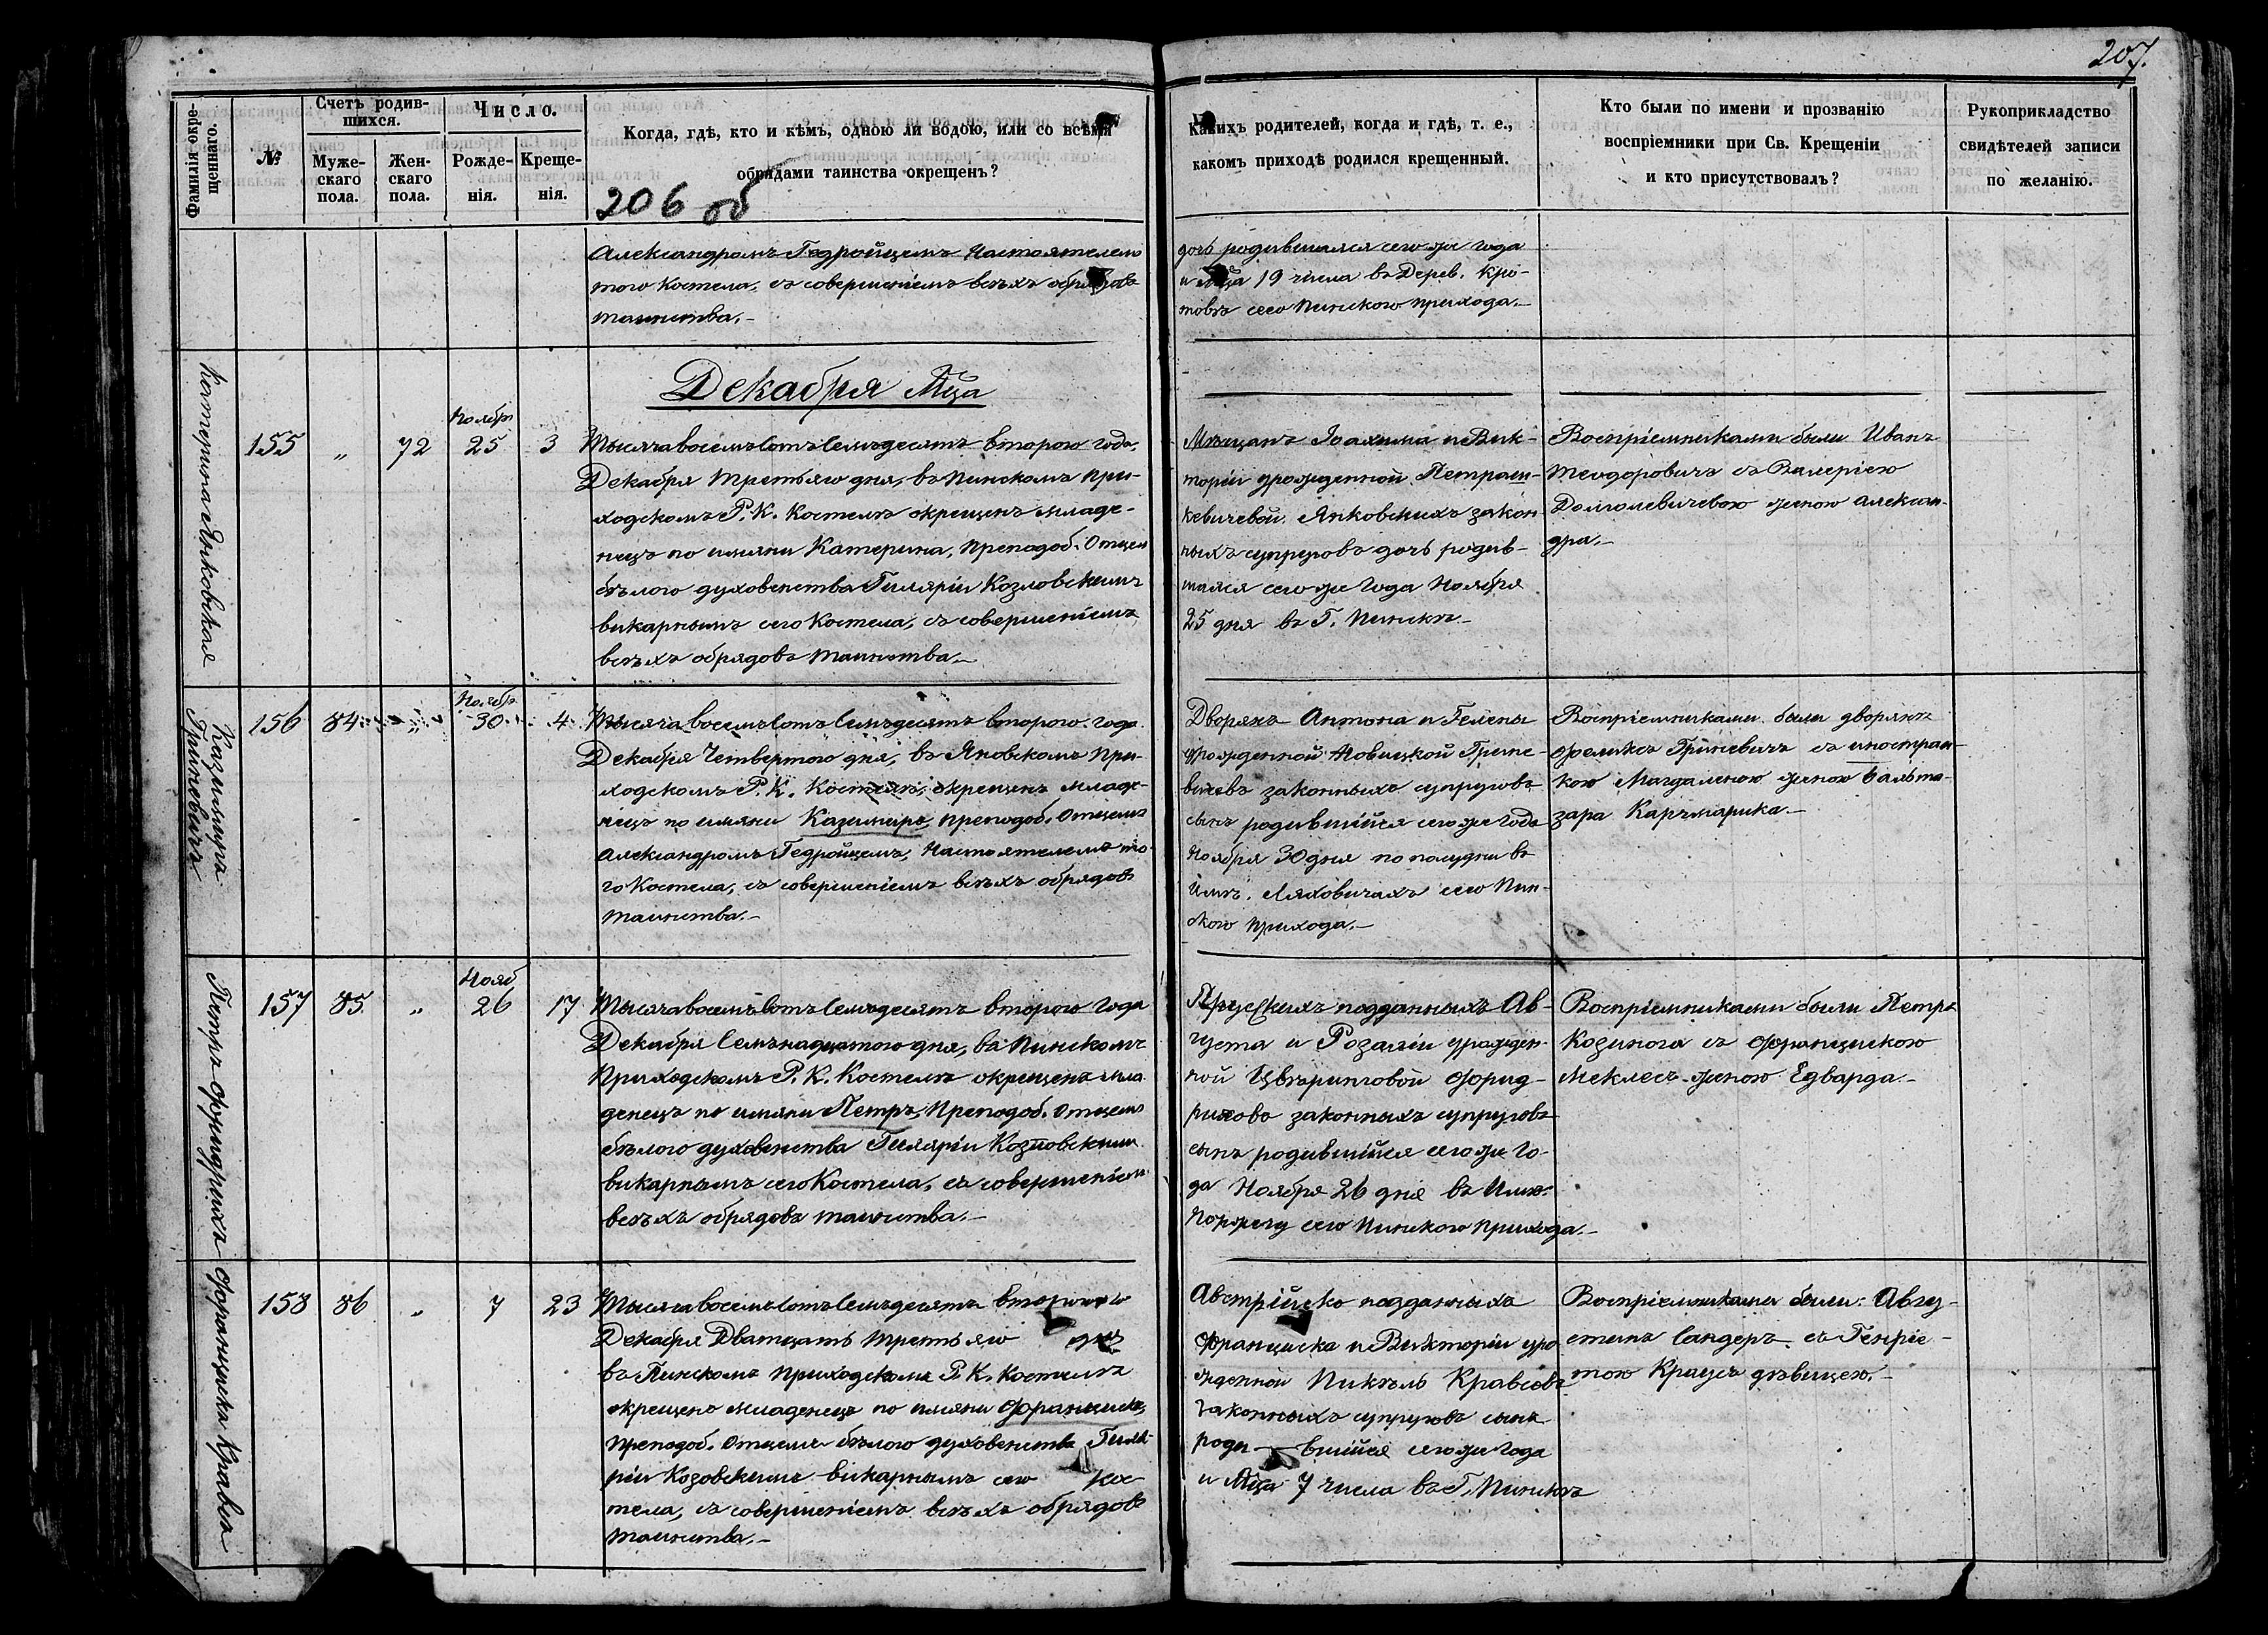 207.
Фамилія окре-
щеннаго.
№
Счетъ родив-
шихся.
Муже-
скаго
пола.
Жен-
скаго
пола.
Число.
Рожде-
нія.
Креще-
нія.
Когда, гдѣ, кто и кѣмъ, одною ли водою, или со всѣми
обрядами таинства окрещенъ?
206 об
Какихъ родителей, когда и гдѣ, т. е.,
какомъ приходѣ родился крещенный.
Кто были по имени и прозванію
воспріемники при Св. Крещеніи
и кто присутствовалъ?
Рукоприкладство
свидѣтелей записи
по желанію.
Александромъ Гедройцемъ Настоятелемъ
того Костела, съ совершеніемъ всѣхъ обрядовъ
таинства.-
дочь родившаяся сего же года
и мца 19 числа въ Дерев. Кро-
товѣ сего Пинского прихода.-
Декабря Мца
Катерина Янковская
155
"
72
Ноября
25
3
Тысяча восемьсотъ семьдесятъ второго года,
Декабря третьяго дня, въ Пинскомъ При-
ходскомъ Р. К. Костелѣ окрещенъ младе-
нецъ по имяни Катерина, преподоб. Отцем
бѣлого духовенства Гиляріи Козловскимъ
викарнымъ сего Костела, съ совершеніемъ
всѣхъ обрядовъ таинства.-
Мѣщанъ Іоахима и Вик-
торіи урожденной Петраш-
кевичевой Янковскихъ закон-
ныхъ супруговъ дочь родив-
шаяся сего же года Ноября
25 дня въ Г. Пинскѣ-
Воспріемниками были Иванъ
Теодоровичъ съ Валеріею
Долголевичевою женою Алексан-
дра.-
Казимиръ
Гриневичъ
156
84
"
Ноябр
30
4
Тысяча восемьсотъ семьдесятъ второго года
Декабря Четвертого дня, въ Яновскомъ При-
ходскомъ Р. К. Костелѣ, окрещенъ младе-
нецъ по имяни Казимиръ, преподоб. Отцемъ
Александромъ Гедройцемъ, Настоятелемъ то-
го Костела, съ совершеніемъ всѣхъ обрядовъ
таинства.-
Дворянъ Антона и Гелены
урожденной Новицкой Грине-
вичевъ законныхъ супруговъ
сынъ родившійся сего же года
Ноября 30 дня по полудни въ
Имѣ. Ляховичахъ сего Пин-
ского прихода.-
Воспріемниками были дворянъ
Феликсъ Гриневичъ съ иностран-
кою Магдаленою женою Бальта-
зара Карчмарика.-
Петръ Фридрихъ
157
85
"
Нояб
26
17
Тысяча восемьсотъ семьдесятъ второго года
Декабря Семьнадцатого дня, въ Пинскомъ
Приходскомъ Р. К. Костелѣ окрещенъ мла
денецъ по имяни Петръ, Преподоб. Отцемъ
бѣлого духовенства Гиляріи Козловскимъ
викарнымъ сего Костела, съ совершеніемъ
всѣхъ обрядовъ таинства.-
Прусскихъ подданныхъ Ав-
густа и Розаліи урожден-
ной Цвѣринговой Фрид-
риховъ законныхъ супруговъ
сынъ родившійся сего же го-
да Ноября 26 дня въ Имѣ.
сего Пинского Прихода.-
Воспріемниками были Петръ
Козинога съ Францискою
Меклесъ женою Едварда.-
Францискъ Кравсъ
158
86
"
7
23
Тысяча восемьсотъ семьдесятъ второго
Декабря Дватцать третьяго дня
въ Пинскомъ приходскомъ Р. К. Костелѣ
окрещенъ младенецъ по имяни Францискъ,
преподоб. Отцемъ бѣлого духовенства Гиля-
ріи Козовскимъ викарнымъ сего Кос-
тела, съ совершеніемъ всѣхъ обрядовъ
таинства.-
Австрійско подданныхъ
Франциска и Викторіи уро-
жденной Пикѣль Кравсовъ
законныхъ супруговъ сынъ
роди-вшійся сего же года
и Мца 7 числа въ Г. Пинскѣ
Воспріемниками были: Авгу-
стинъ Сандеръ съ Генріе-
тою Краусъ дѣвицею.-